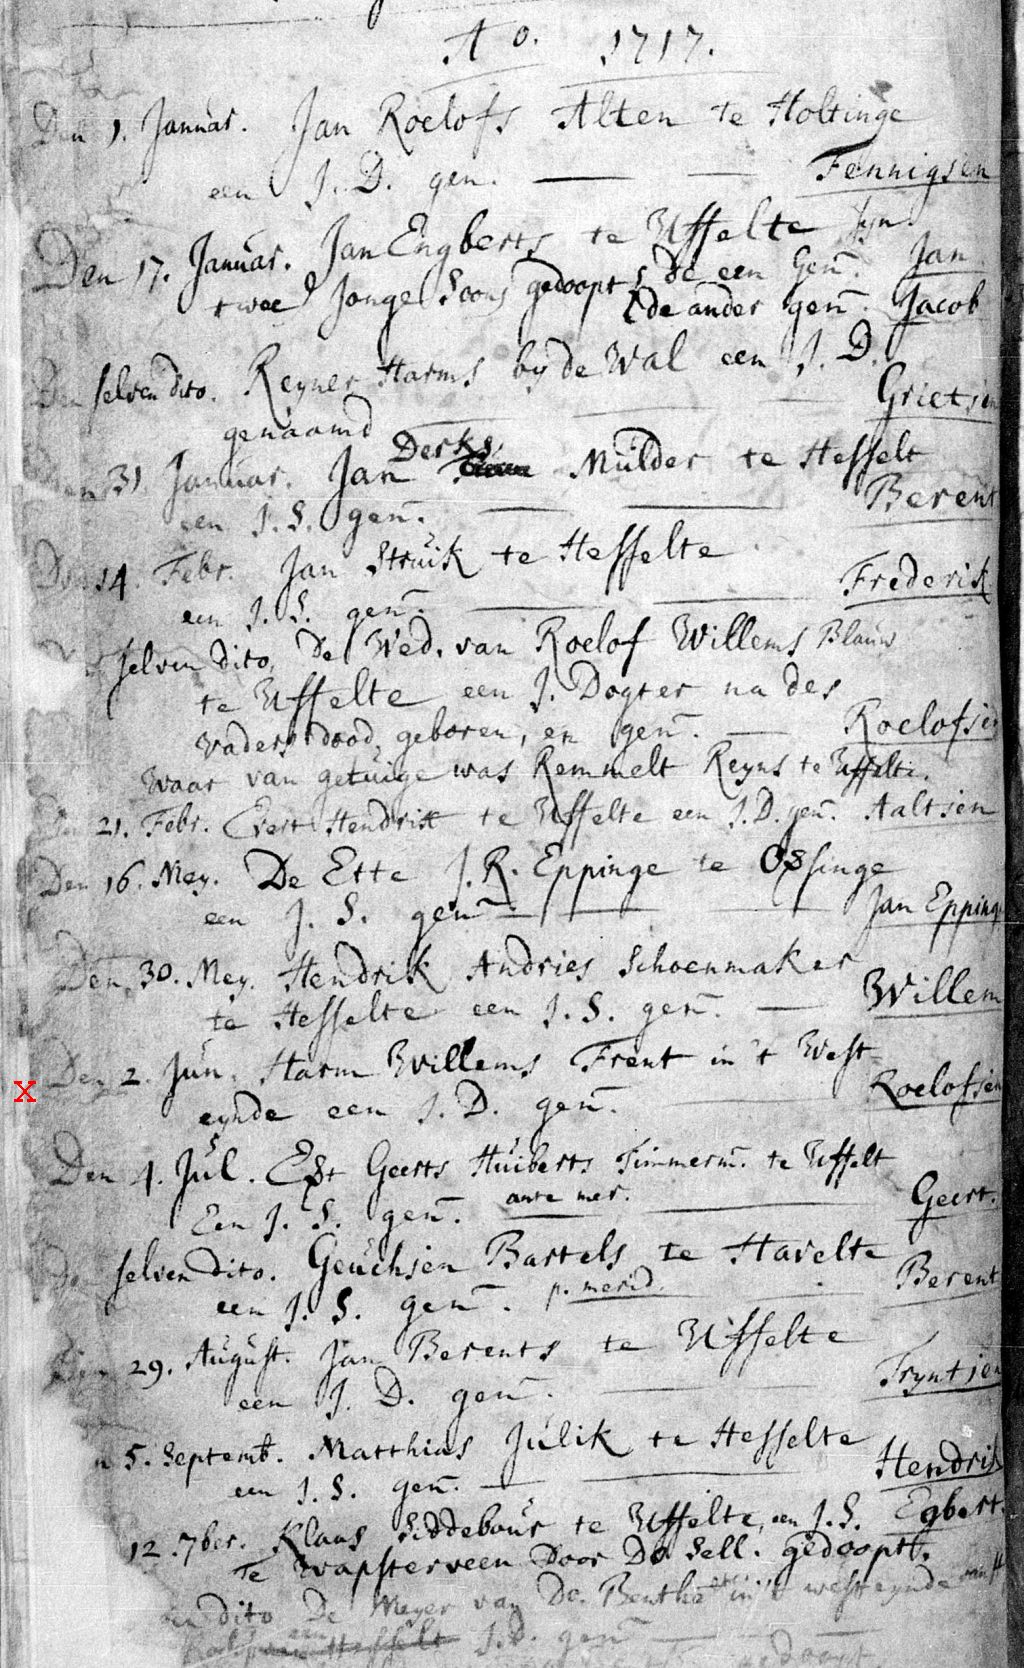 Ao. 1717.
Den 1. Januar. Jan Roelofs Alten te Holtinge
een J. D. gen. Fennigsen
Den 17. Januar. Jan Engberts te Uffelte syn
twee Jonge Soons gedoopt, de een Gen. Jan
de ander gen. Jacob
Den selven dito. Reyner Harms by de Wal een J. D.
genaamd Grietsien
Derks
Den 31 Januar. Jan Mulder te Hesselt
een J. S. gen. Berent
Den 14. Febr. Jan Struik te Hesselte
een J. S. gen. Frederik
selven dito, De Wed. van Roelof Willems Blauw
te Uffelte een J. Dogter na des
vaders dood, geboren, en gen. Roelofsien
Waar van getuige was Remmelt Reyns te Uffelte.
Den 21. Febr. Evert Hendrik te Uffelte een J. D. gen. Aaltsien
Den 16. Mey. De Ette J. R. Eppinge te
een J. S. gen. Jan Epping
Den 30. Mey. Hendrik Andries Schoenmaker
te Hesselte een J. S. gen. Willem
X Den 2. Jun. Harm Willems Frent in't West
eynde een J. D. gen. Roelofsien
Den 4. Jul. Geerts Huiberts Timmerm. te Uffelt
Een J. S. gen. ante mer. Geert.
Den selven dito. Geuchien Bartels te Havelte
een J. S. gen. p. merid. Berent
Den 29. August. Jan Berents te Uffelte
een J. D. gen. Tryntien
5. Septemb. Matthias Julik te Hesselte
een J. S. gen. Hendrik
12. 7ber. Klaas Siddebour te Uffelte, een J. S. Egbert.
Te Wapsterveen Door Do Sell. gedoopt.
dito De Meyer van Do. Benthe in't westeynde
J. D. gen
gedoopt